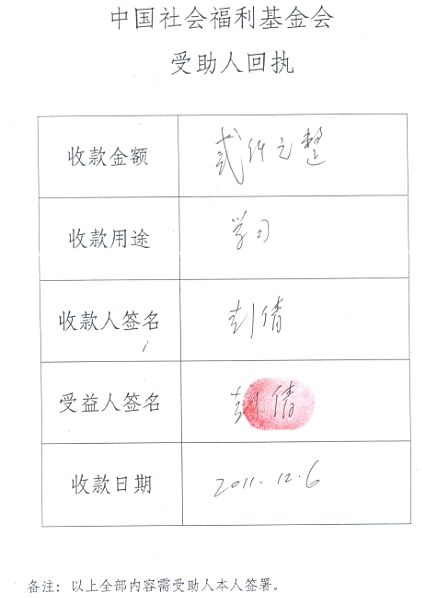 中国社会福利基金会
受助人回执
收款金额 贰仟元整
收款用途 学习
收款人签名 彭倩
受益人签名 彭倩
收款日期 2011.12.6
备注：以上全部内容需受助人本人签署。